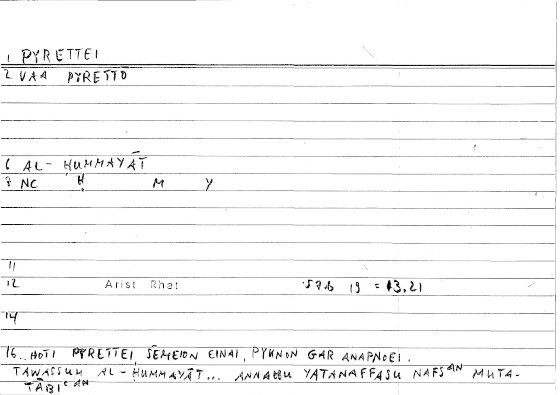 1 PYRETTEI
2 VAA PYRETTŌ
6 AL- ḤUMMAYĀT
7 NC Ḥ M Y
11
12 Arist Rhet 57b 19 = 13,21
14
16 .. HOTI PYRETTEI, SĒMEION EINAI, PYKNON GAR ANAPNOEI.
TAWASSUM AL-ḤUMMAYĀT... ANNAHU YATANAFFASU NAFSAN MUTA-
TĀBIʿAN